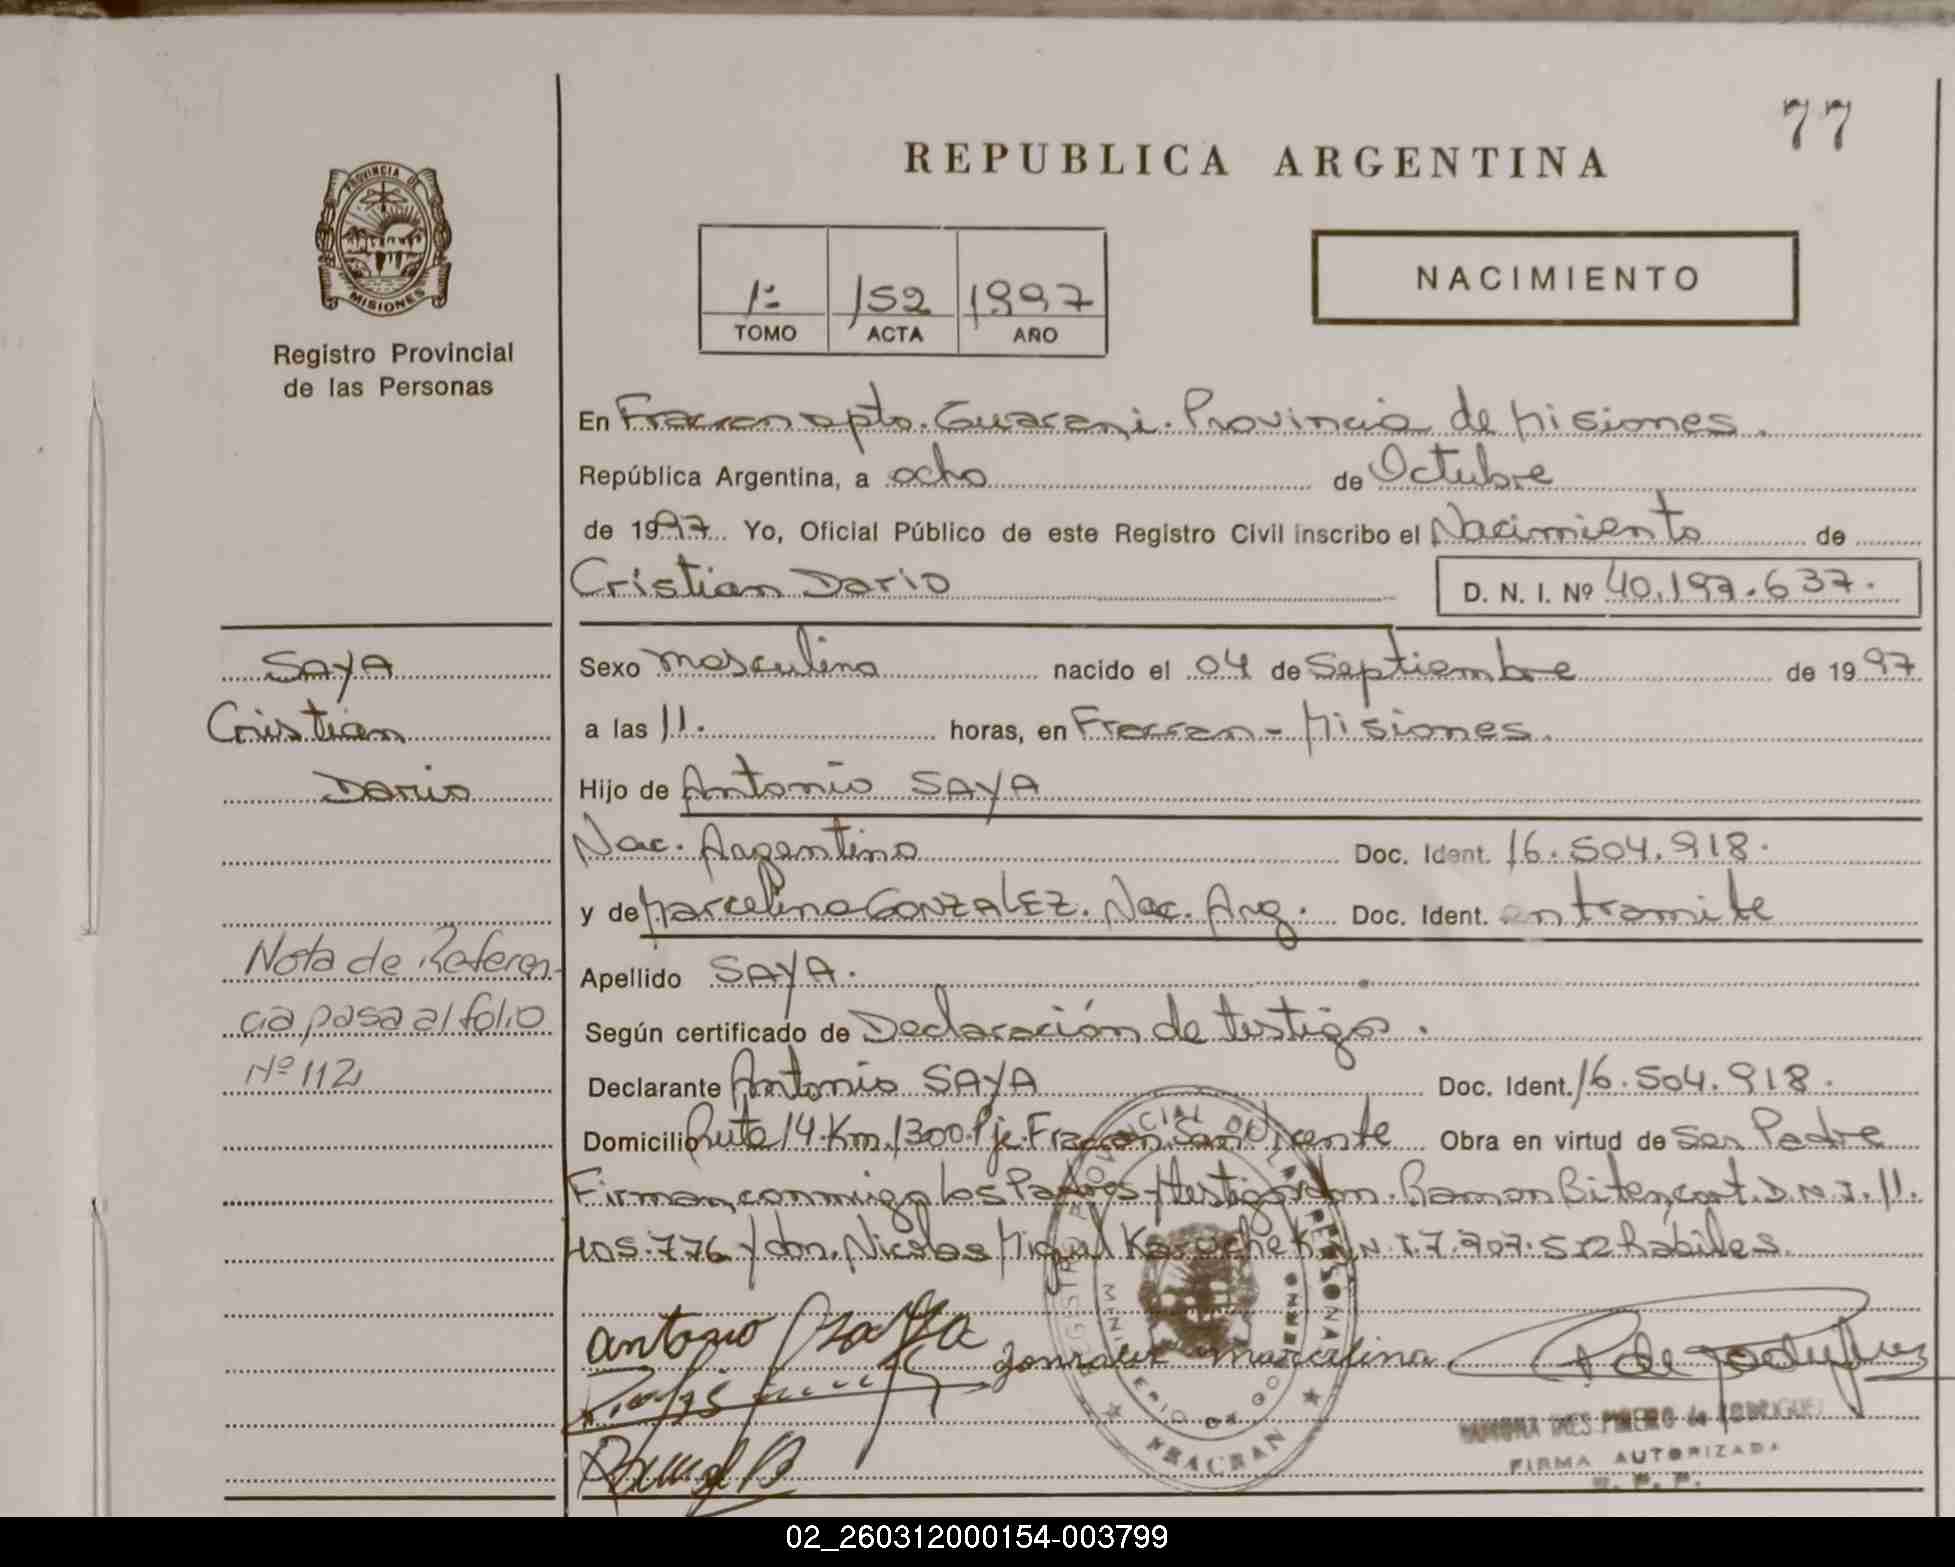 77
REPUBLICA ARGENTINA
PROVINCIA DE
MISIONES
Registro Provincial
de las Personas
1º 152 1997
TOMO ACTA AÑO
NACIMIENTO
En Fracran Dpto. Guarani. Provincia de Misiones.
República Argentina, a ocho de Octubre
de 1997 Yo, Oficial Público de este Registro Civil inscribo el Nacimiento de
Cristian Dario D. N. I. Nº 40.197.637.
SAYA
Cristian
Dario
Sexo masculino nacido el 04 de Septiembre de 1997
a las 11. horas, en Fracran - Misiones.
Hijo de Antonio SAYA
Nac. Argentino Doc. Ident. 16.504.918.
y de Marcelina GONZALEZ. Nac. Arg. Doc. Ident. en tramite
Nota de Referen-
cia pasa al folio
Nº 112
Apellido SAYA.
Según certificado de Declaración de testigo.
Declarante Antonio SAYA Doc. Ident. 16.504.918.
Domicilio Ruta 14. Km. 1300. Pje. Fracran. San Vicente Obra en virtud de Ser Padre
Firman conmigo los Padres y testigos don. Ramon Bitencort. D.N.I. 11.
405.776 y don. Nicolas Miguel D.N.I. 7.707.512 habiles
REGISTRO PROVINCIAL DE LAS PERSONAS
MINISTERIO DE GOBIERNO
FRACRAN
antonio
gonzalez marcelina
RAMONA INES PIÑEIRO de RODRIGUEZ
FIRMA AUTORIZADA
R. P. P.
02_260312000154-003799